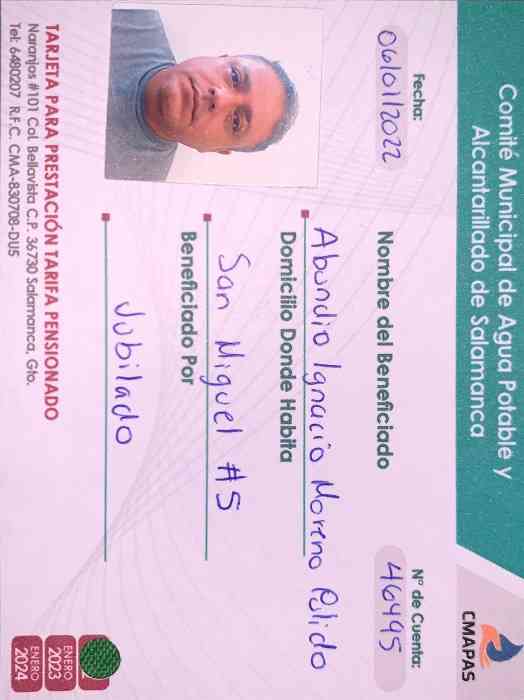 Comité Municipal de Agua Potable y
Alcantarillado de Salamanca
CMAPAS
Fecha:
06/01/2022
Nº de Cuenta:
46495
Nombre del Beneficiado
Abundio Ignacio Moreno Pulido
Domicilio Donde Habita
San Miguel #5
Beneficiado Por
Jubilado
TARJETA PARA PRESTACIÓN TARIFA PENSIONADO
Naranjos #101 Col. Bellavista C.P. 36730 Salamanca, Gto.
Tel: 6480207 R.F.C. CMA-830708-DU5
ENERO
2023
ENERO
2024